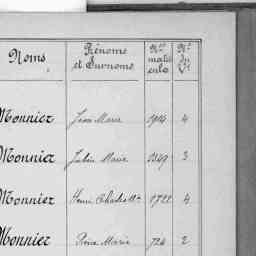 Noms Prénoms et Surnoms Nos matricule No du Vt
Monnier Jean Marie 1904 4
Monnier Julien Marie 1349 3
Monnier Henri Charles 1722 4
Monnier Pierre Marie 724 2